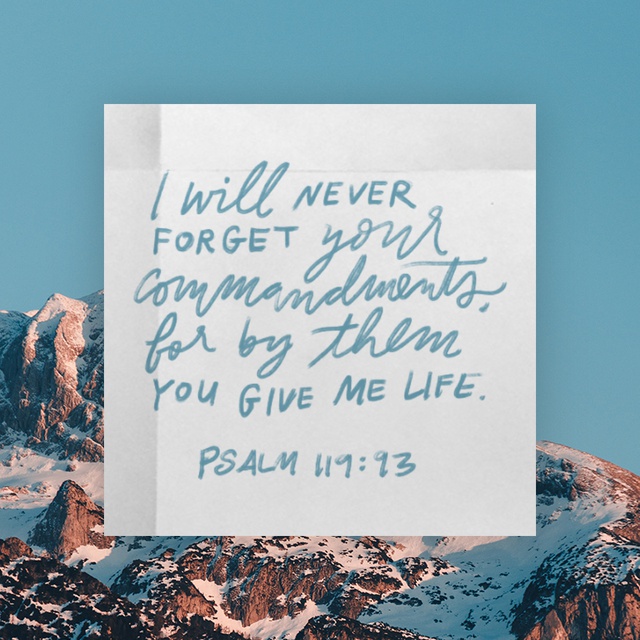 I will NEVER
FORGET your
commandments,
for by them
YOU GIVE ME LIFE.
PSALM 119:93